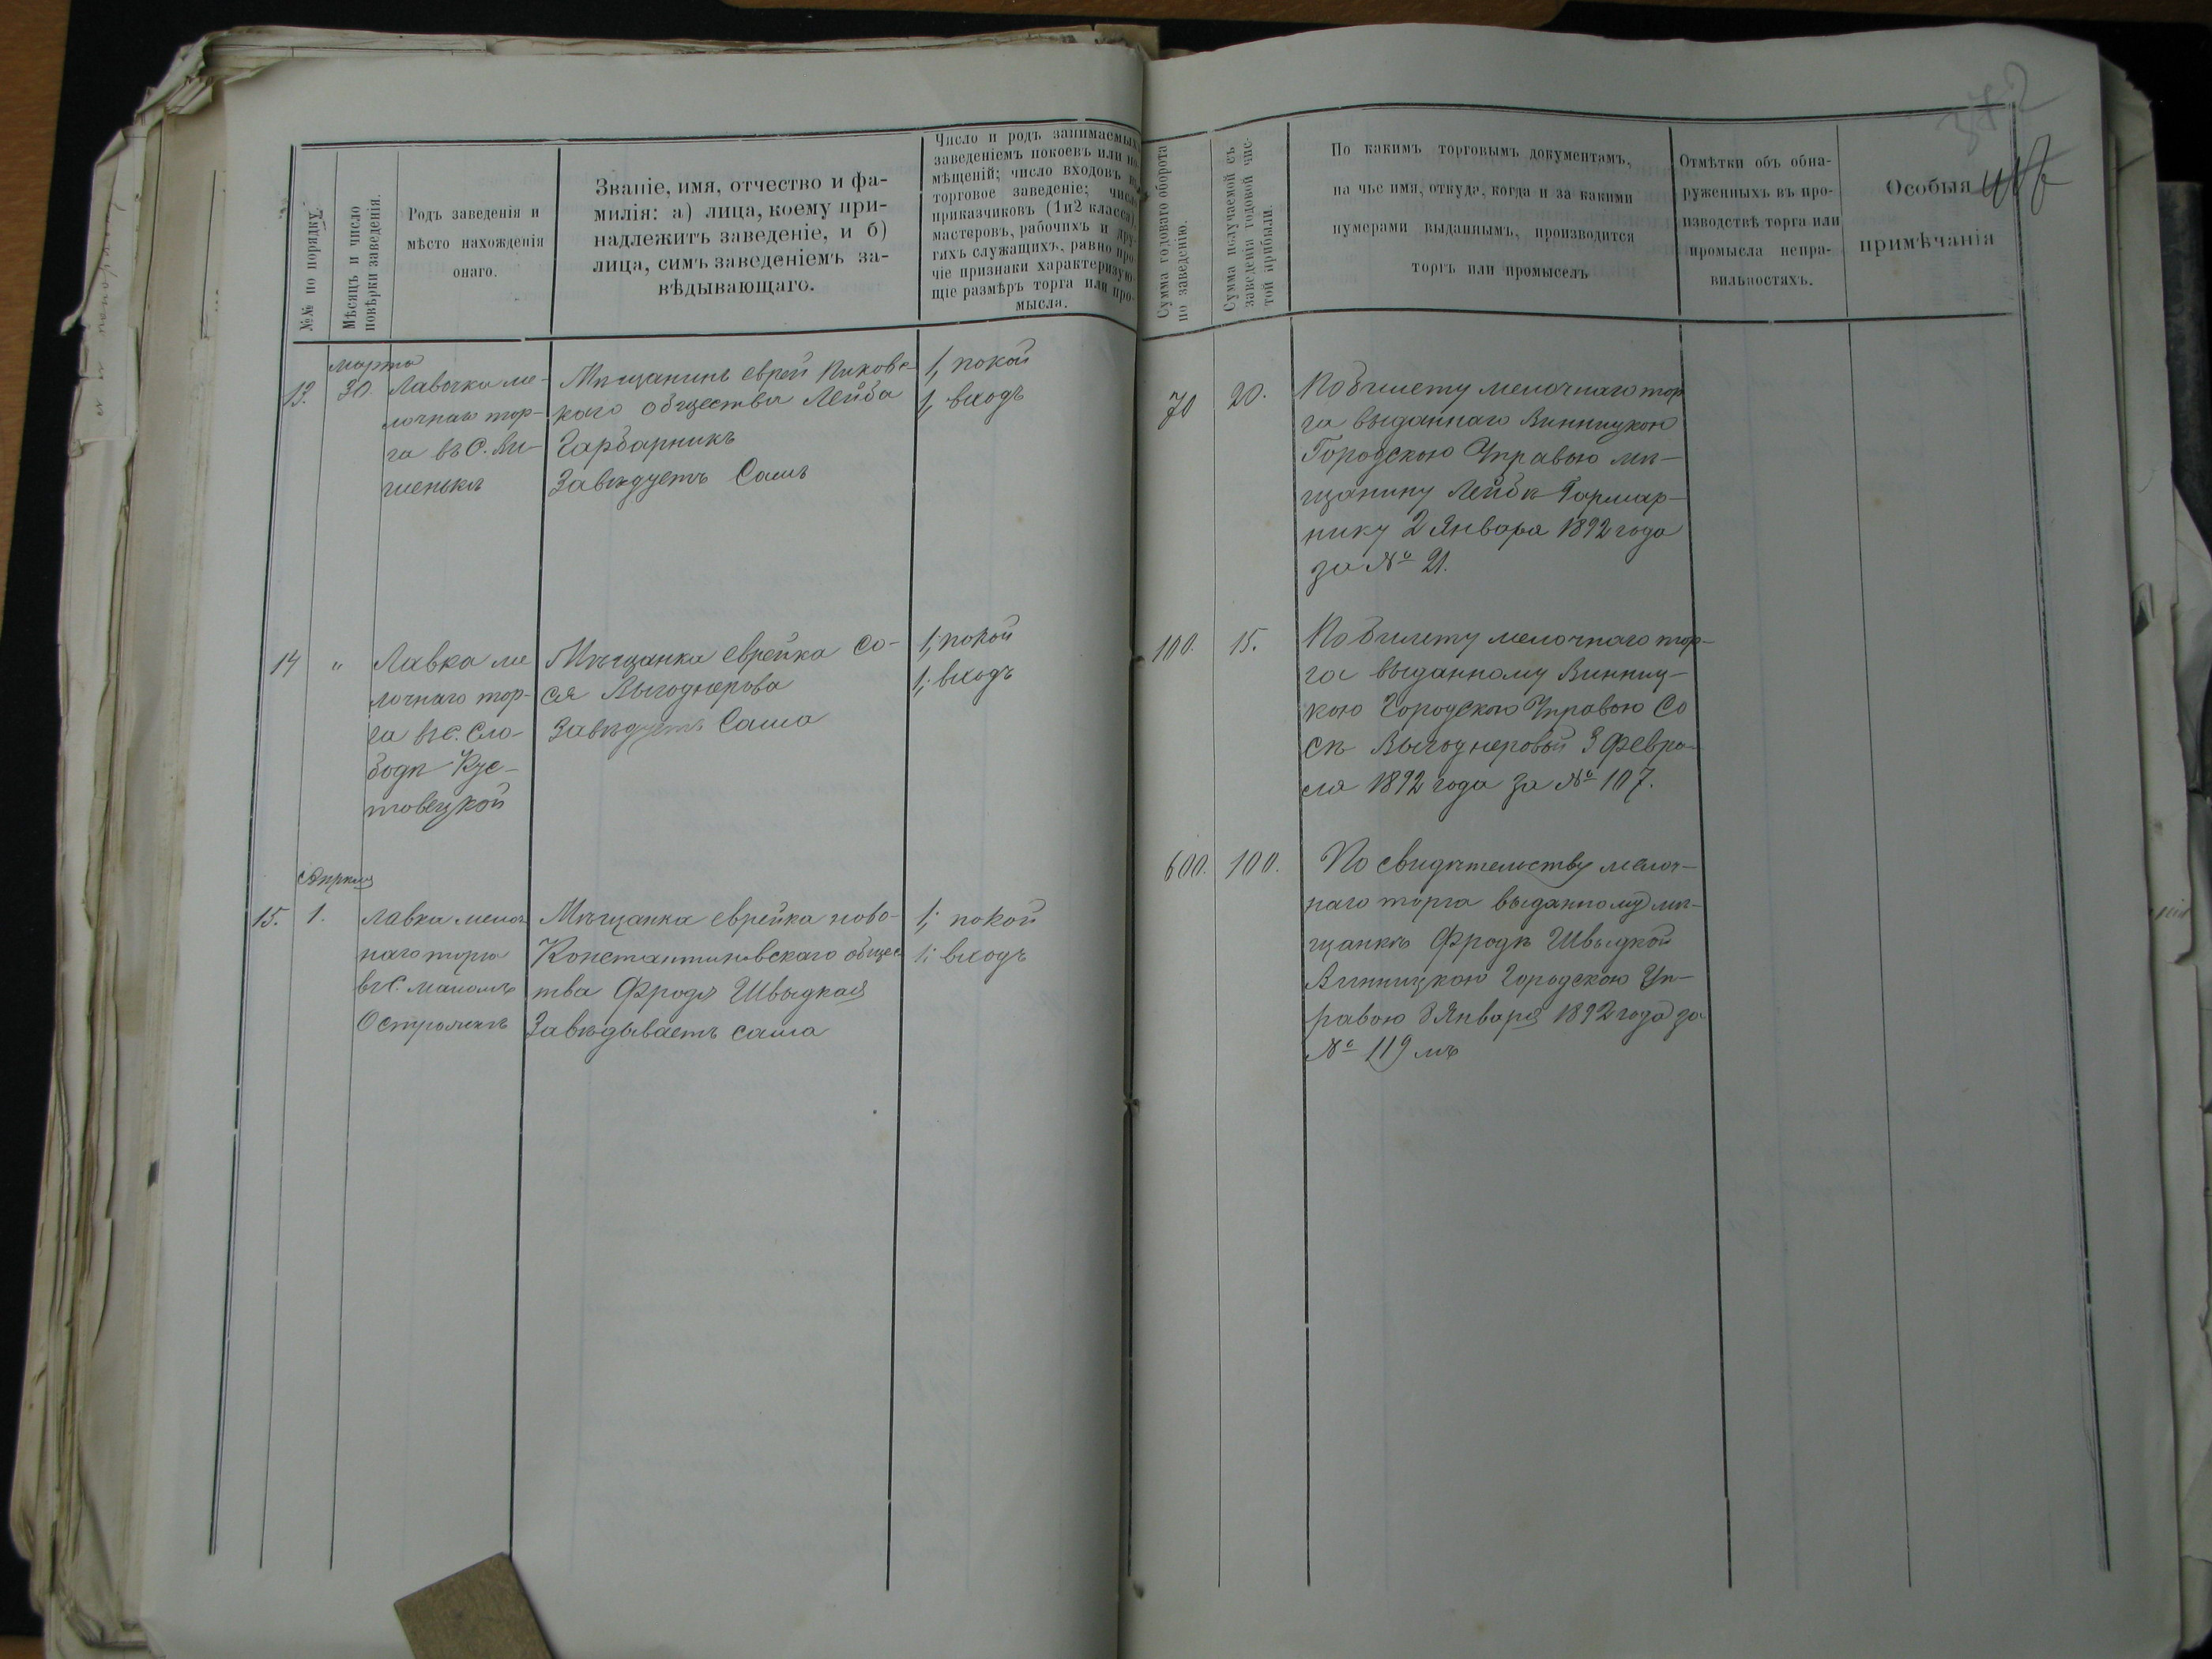 №№ по порядку.
Мѣсяцъ и число
повѣрки заведенія.
Родъ заведенія и
мѣсто нахожденія
онаго.
Званіе, имя, отчество и фа-
милія: а) лица, коему при-
надлежитъ заведеніе, и б)
лица, симъ заведеніемъ за-
вѣдывающаго.
Число и родъ занимаемыхъ
заведеніемъ покоевъ или по-
мѣщеній; число входовъ въ
торговое заведеніе; число
приказчиковъ (1и2 класса),
мастеровъ, рабочихъ и дру-
гихъ служащихъ, равно про-
чіе признаки характеризую-
щіе размѣръ торга или про-
мысла.
Сумма годоваго оборота
по заведенію.
Сумма получаемой съ
заведенія годовой чис-
той прибыли.
По какимъ торговымъ документамъ,
на чье имя, откуда, когда и за какими
нумерами выданнымъ, производится
торгъ или промыселъ
Отмѣтки объ обна-
руженныхъ въ про-
изводствѣ торга или
промысла непра-
вильностяхъ.
Особыя
примѣчанія
13.
Марта
30.
Лавочка ме-
лочнаго тор-
га въ С. Ви-
шенькѣ
Мѣщанинъ еврей Пиковс-
каго общества Лейба
Гарбарникъ
Завѣдуетъ Самъ
1, покой
1, входъ
70
20.
По билету мелочнаго тор
га выданнаго Винницкою
Городскою Управою мѣ-
щанину Лейбѣ Гармар-
нику 2 Января 1892 года
за № 21.
14
"
Лавка ме
лочнаго тор-
га въ с. Сло-
бодѣ Кус-
товецкой
Мѣщанка еврейка Со-
ся Выгоднерова
Завѣдуетъ Сама
1; покой
1; входъ
100.
15.
По билету мелочнаго тор-
га выданному Винниц-
кою Городскою Управою Со
сѣ Выгоднеровой 3 Февра-
ля 1892 года за № 107.
Апрѣля
15.
1.
Лавка мелоч
наго торга
въ с. Маломъ
Острожкѣ
Мѣщанка еврейка ново-
Константиновскаго общес
тва Фродя Швыдкая
Завѣдываетъ сама
1; покой
1; входъ
600.
100.
По свидѣтельству мелоч-
наго торга выданному мѣ-
щанкѣ Фродѣ Швыдкой
Винницкою Городскою Уп-
равою 8 Января 1892 года за
№ 119 мъ